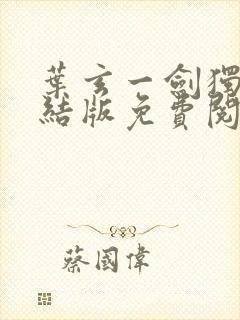 葉玄一劍獨
結版免費閱
蔡國偉